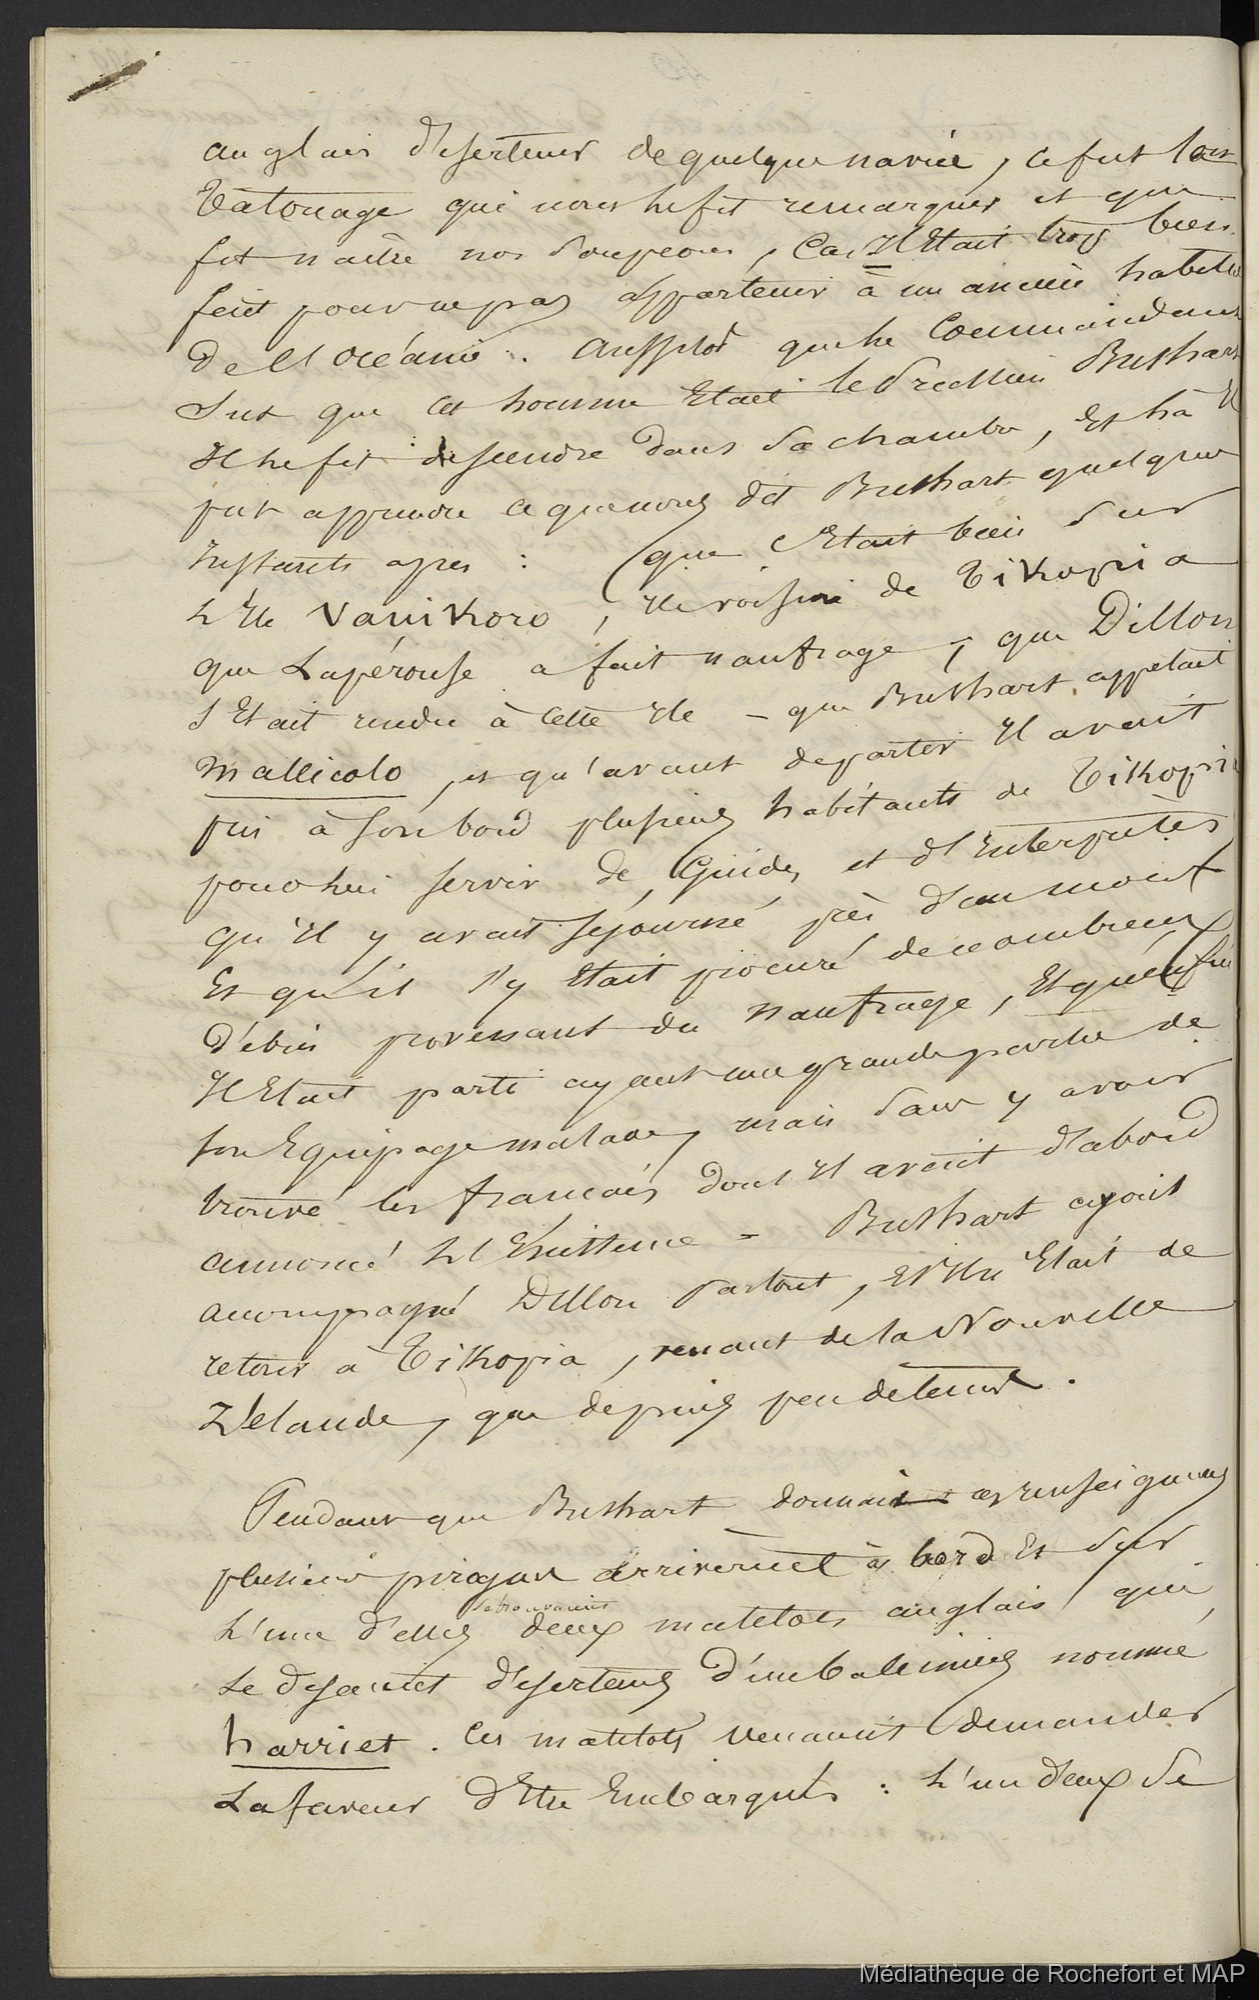 anglais déserteur de quelque navire, ce fut son
tatouage qui nous le fit remarquer et qui
fit naître nos soupçons, Car Il Etait trop bien
fait pour ne pas appartenir à un ancien habitué
de l'Océanie. Aussitôt que le Commandant
Sut que cet homme Etait le Prussien Bushart
Il le fit descendre dans sa chambre, Et là Il
put apprendre ce que nous dit Bushart quelques
Instants après : (que C'Etait bien sur
L'Ile Vanikoro, Ile voisine de Tikopia
que Lapérouse a fait naufrage, que Dillon
S'Etait rendu à cette Ile – que Bushart appelait
Mallicolo, et qu'avant de partir Il avait
pris à son bord plusieurs habitants de Tikopia
pour lui servir de Guides et d'Interprètes
qu'Il y avait séjourné près d'un mois
Et qu'il s'y Etait procuré de nombreux
débris provenant du naufrage, Et qu'enfin
Il Etait parti ayant une grande partie de
son Equipage malade, mais sans y avoir
trouvé les français dont Il avait d'abord
annoncé L'Existence = Bushart avait
accompagné Dillon partout, Et Il n'Etait de
retour à Tikopia, venant de la Nouvelle
Zélande, que depuis peu de temps.
Pendant que Bushart donnait ces renseignements
plusieurs pirogues arrivèrent à bord Et sur
L'une d'elles se trouvaient deux matelots anglais qui
se disaient déserteurs d'un baleinier nommé
harriet. Ces matelots venaient demander
La faveur d'Etre Embarqués : L'un d'eux se
Médiathèque de Rochefort et MAP